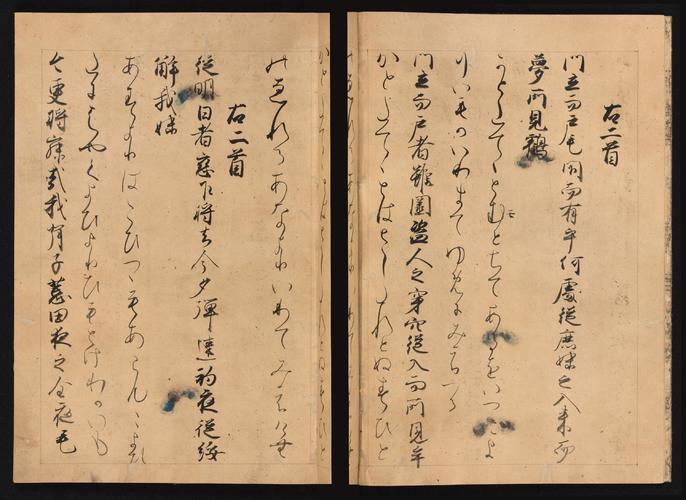 右二首
門立而戸毛閇而有乎何處従鹿妹之入来而
夢所見鶴
かとたてゝともとちてあるをいつこよ
りいもかいりきてゆめにみえつる
門立而戸者雖闔盗人之穿穴従入而所見牟
かとたてゝとはさしたれとぬすひと
のほれるあなよりいりてみえけむ
右二首
従明日者戀乍将去今夕弾速初夜従綏
解我妹
あすよりはこひつゝもあらんこよひ
たにはやくよひよりひもとけわかいも
今更将寐哉我背子荒田夜之全夜毛